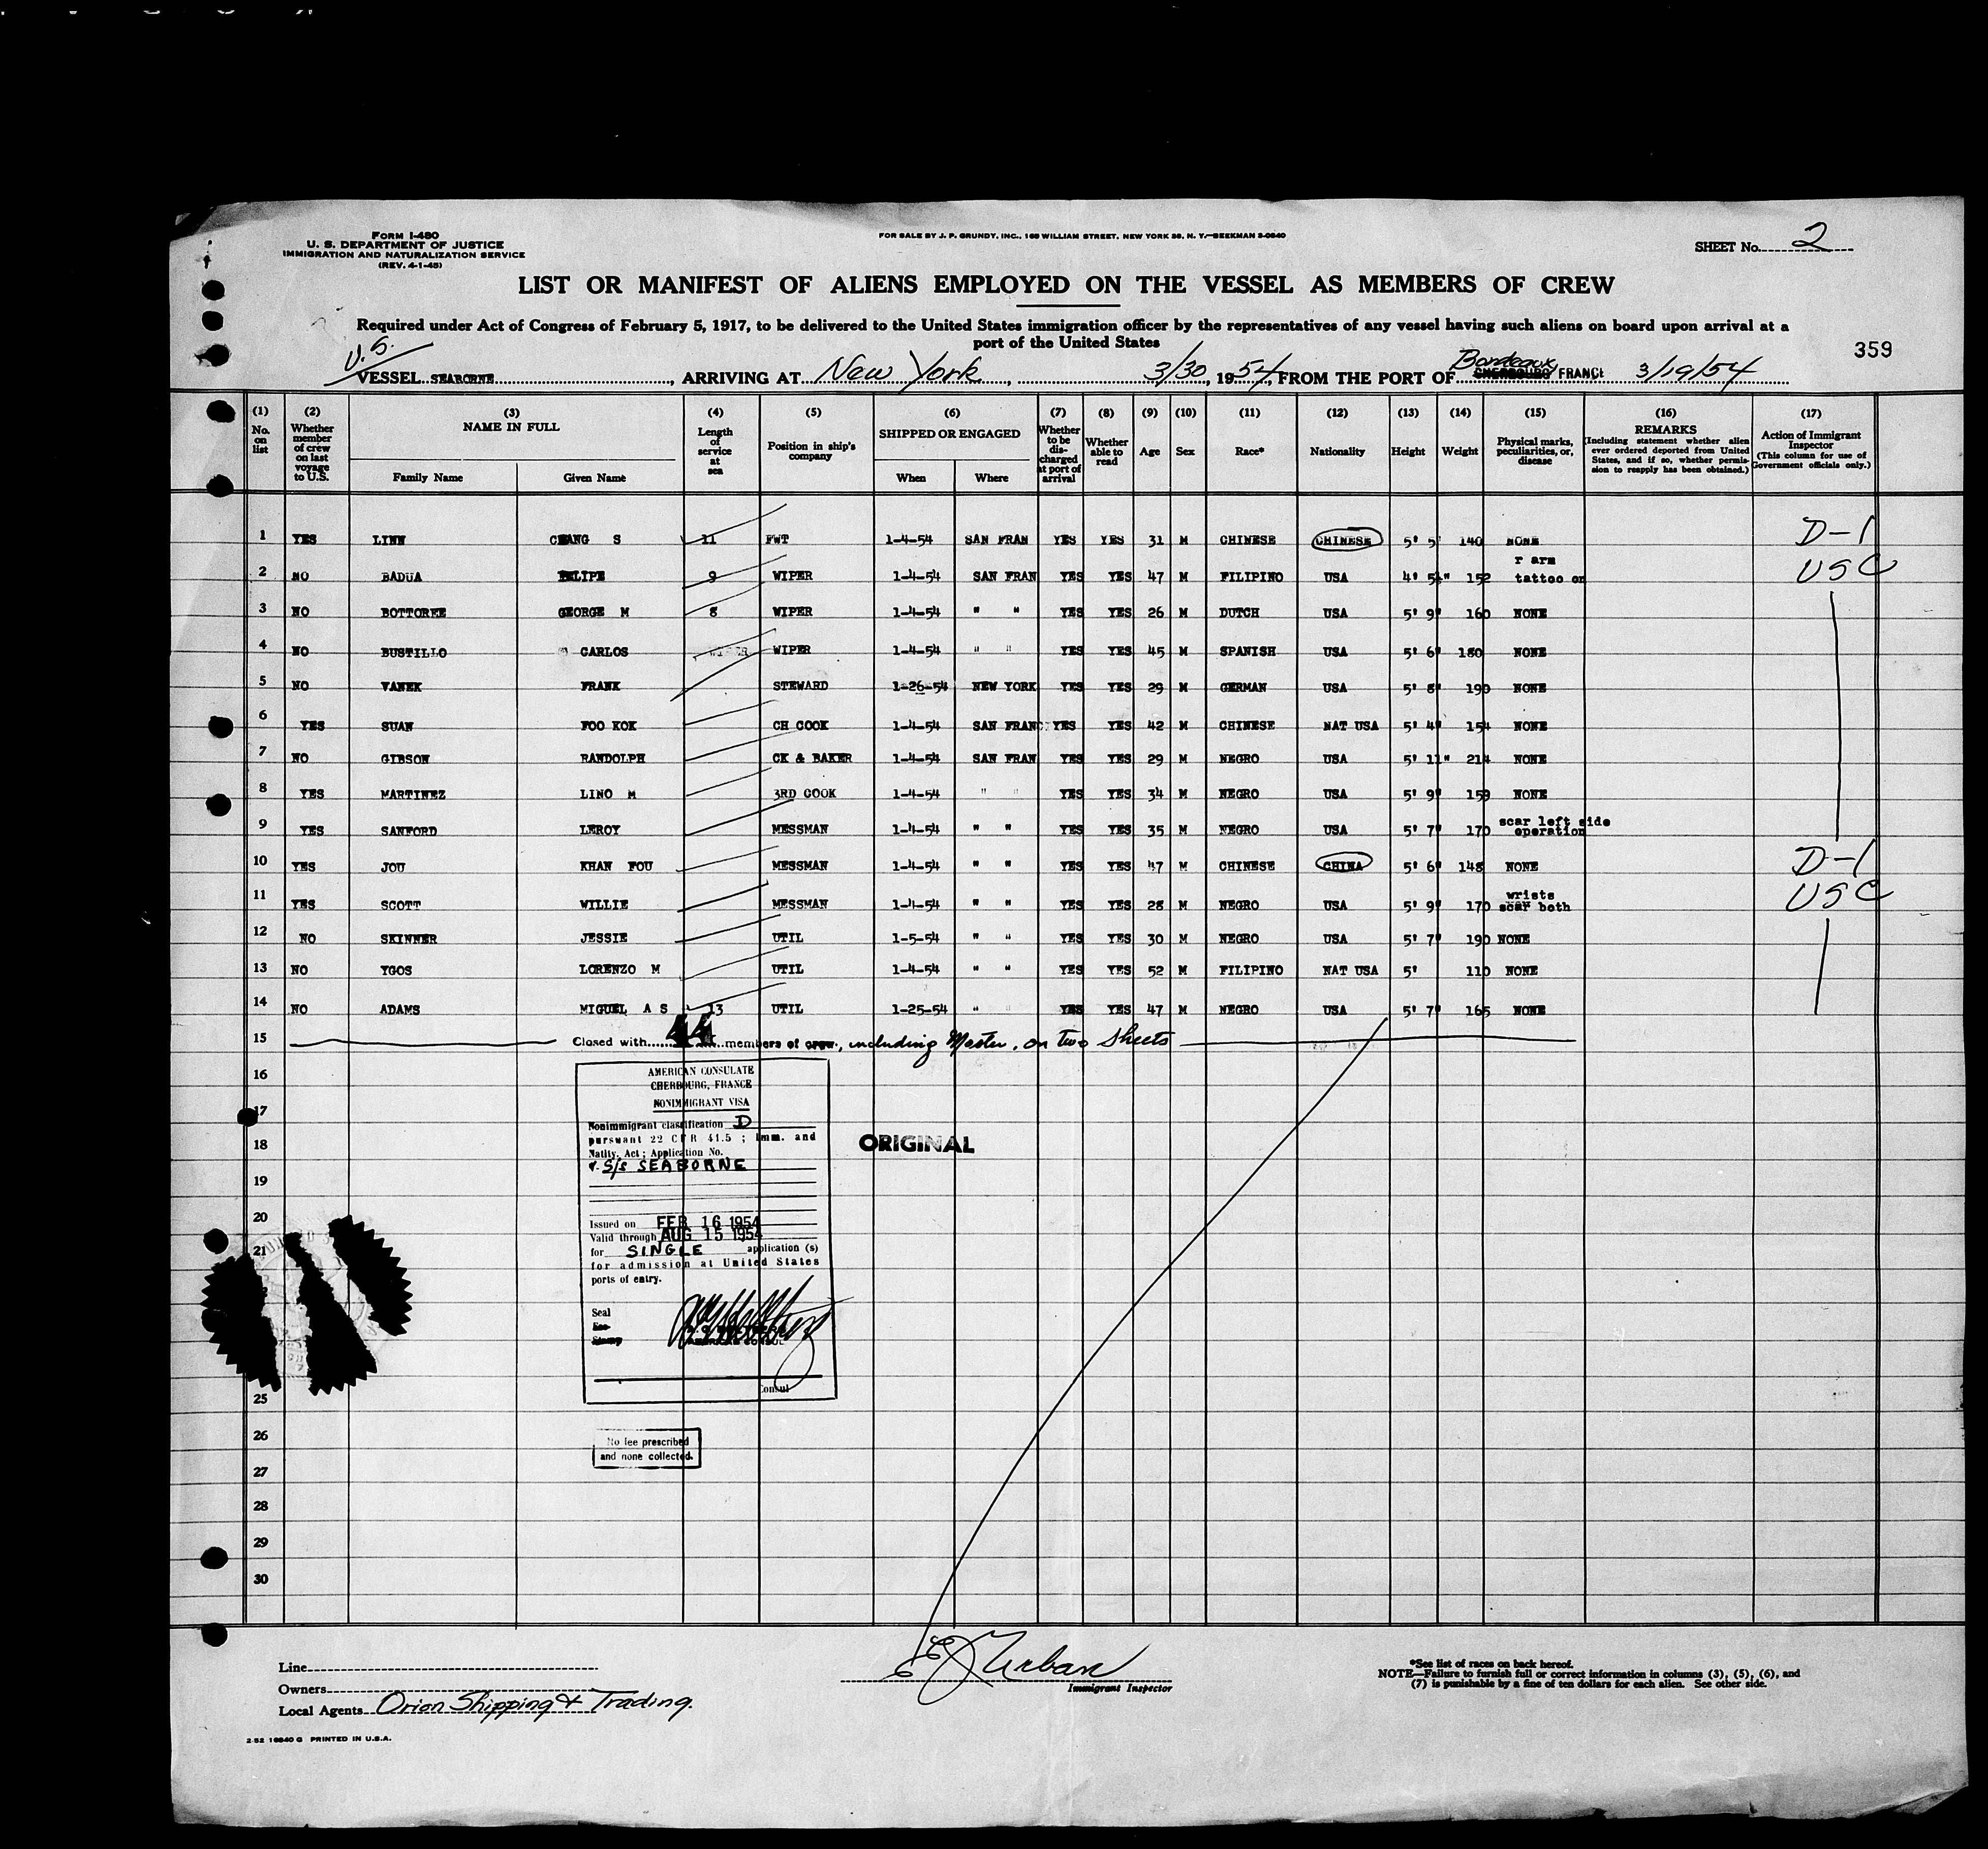 FORM I-480
U. S. DEPARTMENT OF JUSTICE
IMMIGRATION AND NATURALIZATION SERVICE
(REV. 4-1-45)
FOR SALE BY J. P. GRUNDY, INC., 168 WILLIAM STREET, NEW YORK 38, N. Y.—BEEKMAN 3-0840
SHEET No. 2
LIST OR MANIFEST OF ALIENS EMPLOYED ON THE VESSEL AS MEMBERS OF CREW
Required under Act of Congress of February 5, 1917, to be delivered to the United States immigration officer by the representatives of any vessel having such aliens on board upon arrival at a
port of the United States
359
U.S.
VESSEL SEABORNE, ARRIVING AT New York, 3/30, 1954, FROM THE PORT OF Bordeaux CHERBOURG FRANCE 3/19/54
(1) No. on list
(2) Whether member of crew on last voyage to U.S.
(3) NAME IN FULL Family Name Given Name
(4) Length of service at sea
(5) Position in ship's company
(6) SHIPPED OR ENGAGED When Where
(7) Whether to be discharged at port of arrival
(8) Whether able to read
(9) Age
(10) Sex
(11) Race*
(12) Nationality
(13) Height
(14) Weight
(15) Physical marks, peculiarities, or, disease
(16) REMARKS (Including statement whether alien ever ordered deported from United States, and if so, whether permission to reapply has been obtained.)
(17) Action of Immigrant Inspector (This column for use of Government officials only.)
1 YES LINN CHANG S 11 FWT 1-4-54 SAN FRAN YES YES 31 M CHINESE CHINESE 5' 5 140 NONE D-1
2 NO BADUA FELIPE 9 WIPER 1-4-54 SAN FRAN YES YES 47 M FILIPINO USA 4' 5½" 152 r arm tattoo on USC
3 NO BOTTORFF GEORGE M 8 WIPER 1-4-54 " " YES YES 26 M DUTCH USA 5' 9" 160 NONE
4 NO BUSTILLO CARLOS WIPER 1-4-54 " " YES YES 45 M SPANISH USA 5' 6" 180 NONE
5 NO VANEK FRANK STEWARD 1-26-54 NEW YORK YES YES 29 M GERMAN USA 5' 8" 190 NONE
6 YES SUAN FOO KOK CH COOK 1-4-54 SAN FRANC YES YES 42 M CHINESE NAT USA 5' 4" 154 NONE
7 NO GIBSON RANDOLPH CK & BAKER 1-4-54 SAN FRAN YES YES 29 M NEGRO USA 5' 11" 214 NONE
8 YES MARTINEZ LINO M 3RD COOK 1-4-54 " " YES YES 34 M NEGRO USA 5' 9" 159 NONE
9 YES SANFORD LEROY MESSMAN 1-4-54 " " YES YES 35 M NEGRO USA 5' 7" 170 scar left side operation
10 YES JOU KHAN FOU MESSMAN 1-4-54 " " YES YES 47 M CHINESE CHINA 5' 6" 148 NONE D-1
11 YES SCOTT WILLIE MESSMAN 1-4-54 " " YES YES 28 M NEGRO USA 5' 9" 170 wrists scar both USC
12 NO SKINNER JESSIE UTIL 1-5-54 " " YES YES 30 M NEGRO USA 5' 7" 190 NONE
13 NO YGOS LORENZO M UTIL 1-4-54 " " YES YES 52 M FILIPINO NAT USA 5' 110 NONE
14 NO ADAMS MIGUEL A S 13 UTIL 1-25-54 " " YES YES 47 M NEGRO USA 5' 7" 165 NONE
15 Closed with 44 members of crew, including Master, on two Sheets
16
17
18
19
20
21
25
26
27
28
29
30
AMERICAN CONSULATE
CHERBOURG, FRANCE
NONIMMIGRANT VISA
Nonimmigrant classification D
pursuant 22 CFR 41.5 ; Imm. and
Natlty. Act ; Application No.
S/S SEABORNE
Issued on FEB 16 1954
Valid through AUG 15 1954
for SINGLE application (s)
for admission at United States
ports of entry.
Seal
Fee
Stamp
AMERICAN CONSUL
Consul
ORIGINAL
No fee prescribed
and none collected.
Line
Owners
Local Agents Orion Shipping & Trading.
E J Urban
Immigrant Inspector
*See list of races on back hereof.
NOTE—Failure to furnish full or correct information in columns (3), (5), (6), and
(7) is punishable by a fine of ten dollars for each alien. See other side.
2-52 16840 G PRINTED IN U.S.A.